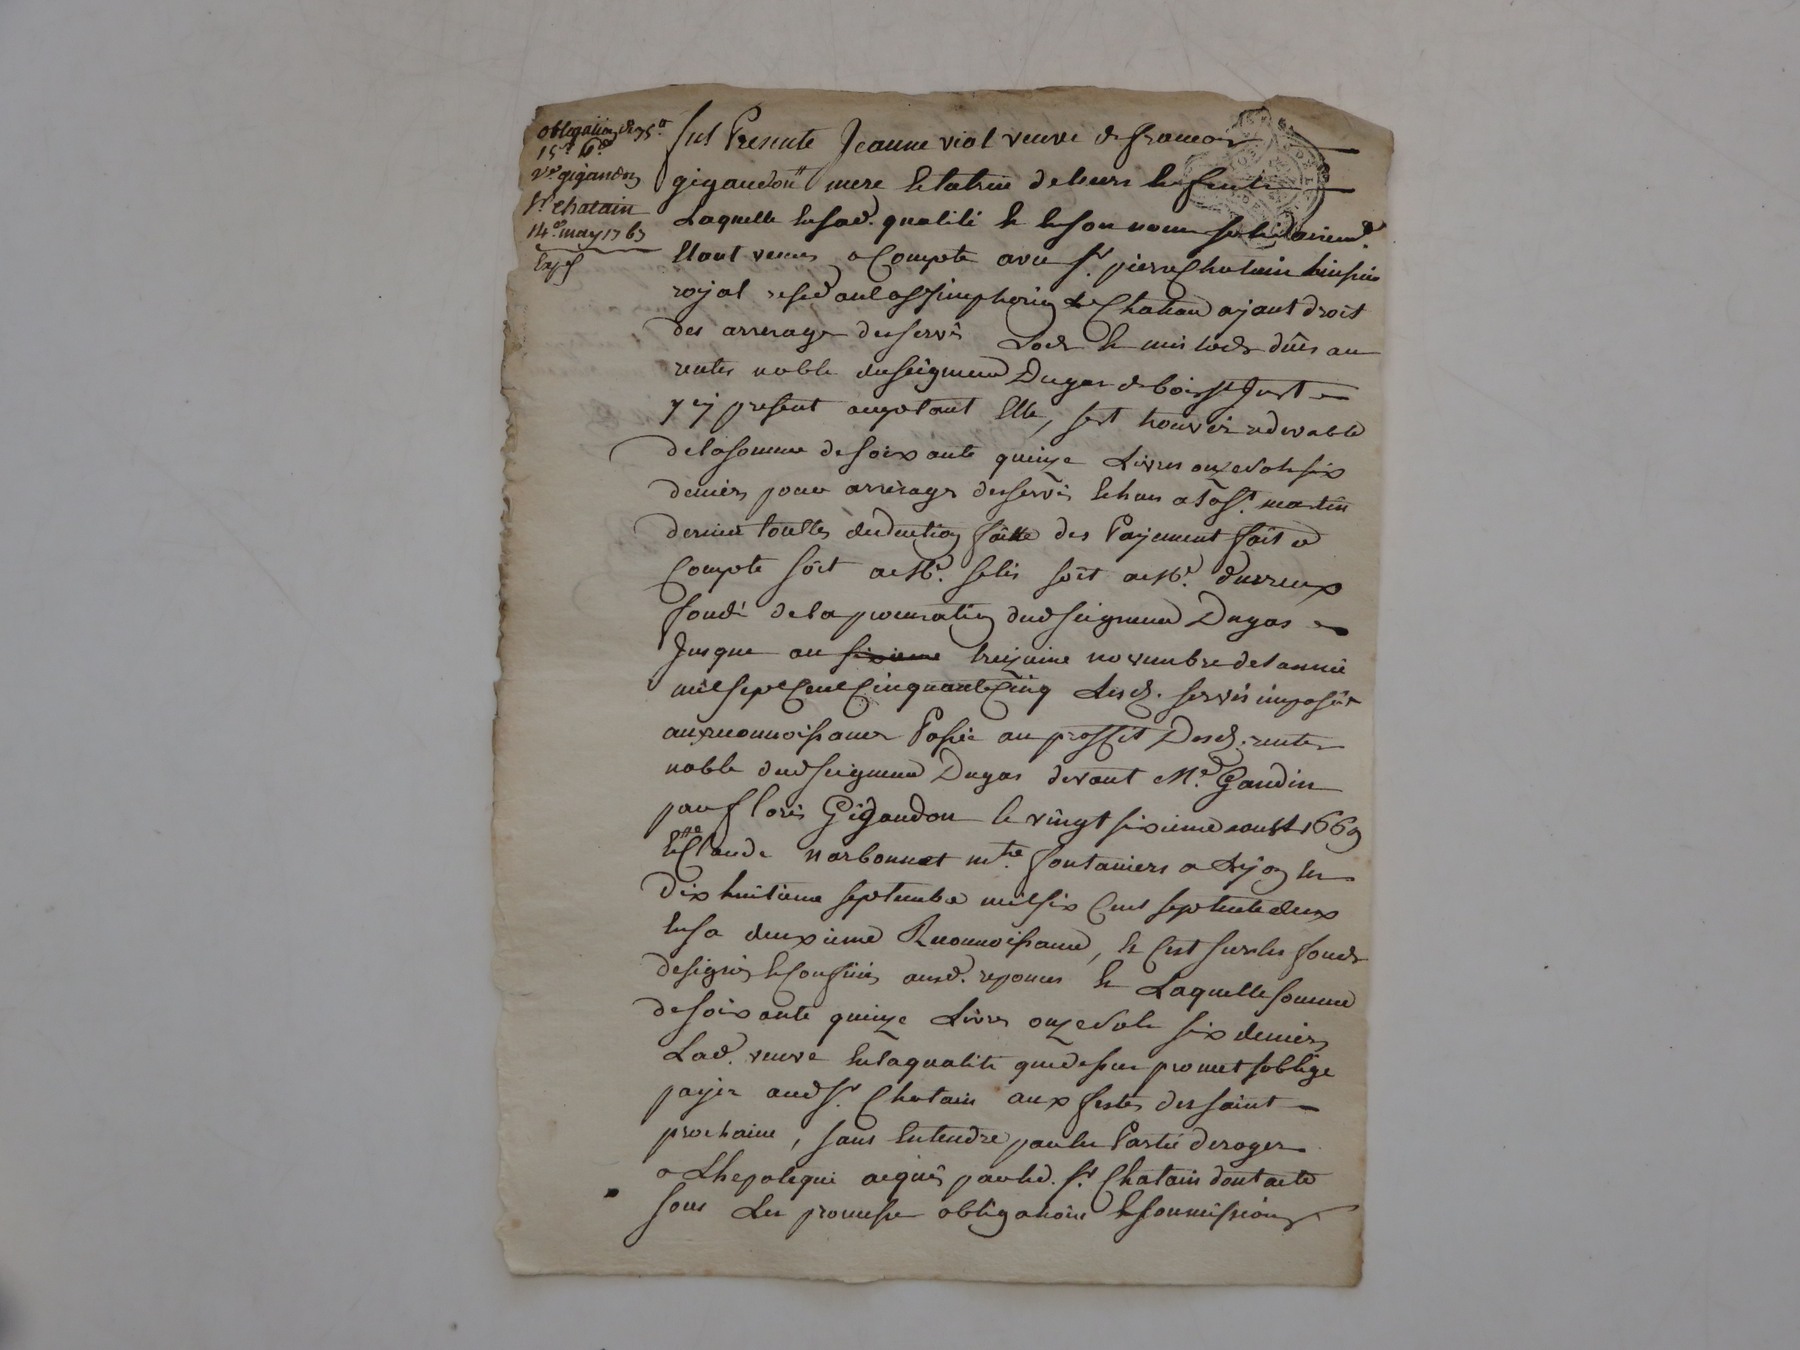 obligation de 75lt
15s 6d
ve gigandon
Sr Chatain
14e may 1763
Exp
fut Presente Jeanne viol veuve de francois
gigaudon mere et tutrice de leurs enfents
Laquelle en sad. qualité et en son nom solidairemt.
Etant venue a Compte avec Sr. pierre Chatain
royal resid au st simphorien le Chateau ayant droit
des arrerage des servis Lods et mis lods dûes au
rentes noble du seigneur Dugas de bois St Just
y present acceptant Elle, sest trouvée redevable
de la somme de soixante quinze Livres onze sols six
deniers pour arrerages des servis echus a la St. martin
dernier touttes deduction faitte des Payement fait a
Compte soit a Mr. soit a Mr. durieux
fondé de la procuration dud seigneur Dugas
Jusque au sixieme treizieme novembre de lannée
mil sept Cent Cinquante Cinq Lesd. servis imposée
aux reconnoissances Passée au proffit Desd. rentes
noble dud seigneur Dugas devant Me. Gaudin
par floris Gigaudon le vingt sixieme aoust 1669
et Claude narbonnet mtre. fontaniers a Lyon le
Dix huitieme septembre mil six Cent septente deux
en sa deuxieme Reconnoissance, et Cest sur les fonds
designés et confinés aud. reponces et Laquelle somme
de soixante quinze Livres onze sols six deniers
Lad. veuve en la qualité que dessus promet soblige
payer aud Sr. Chatain aux festes des saint
prochaine, sans Entendre par les Partie deroger
a Lhepoteque aquis par led. Sr. Chatain dont acte
sous Les promesse obligations et soumissions